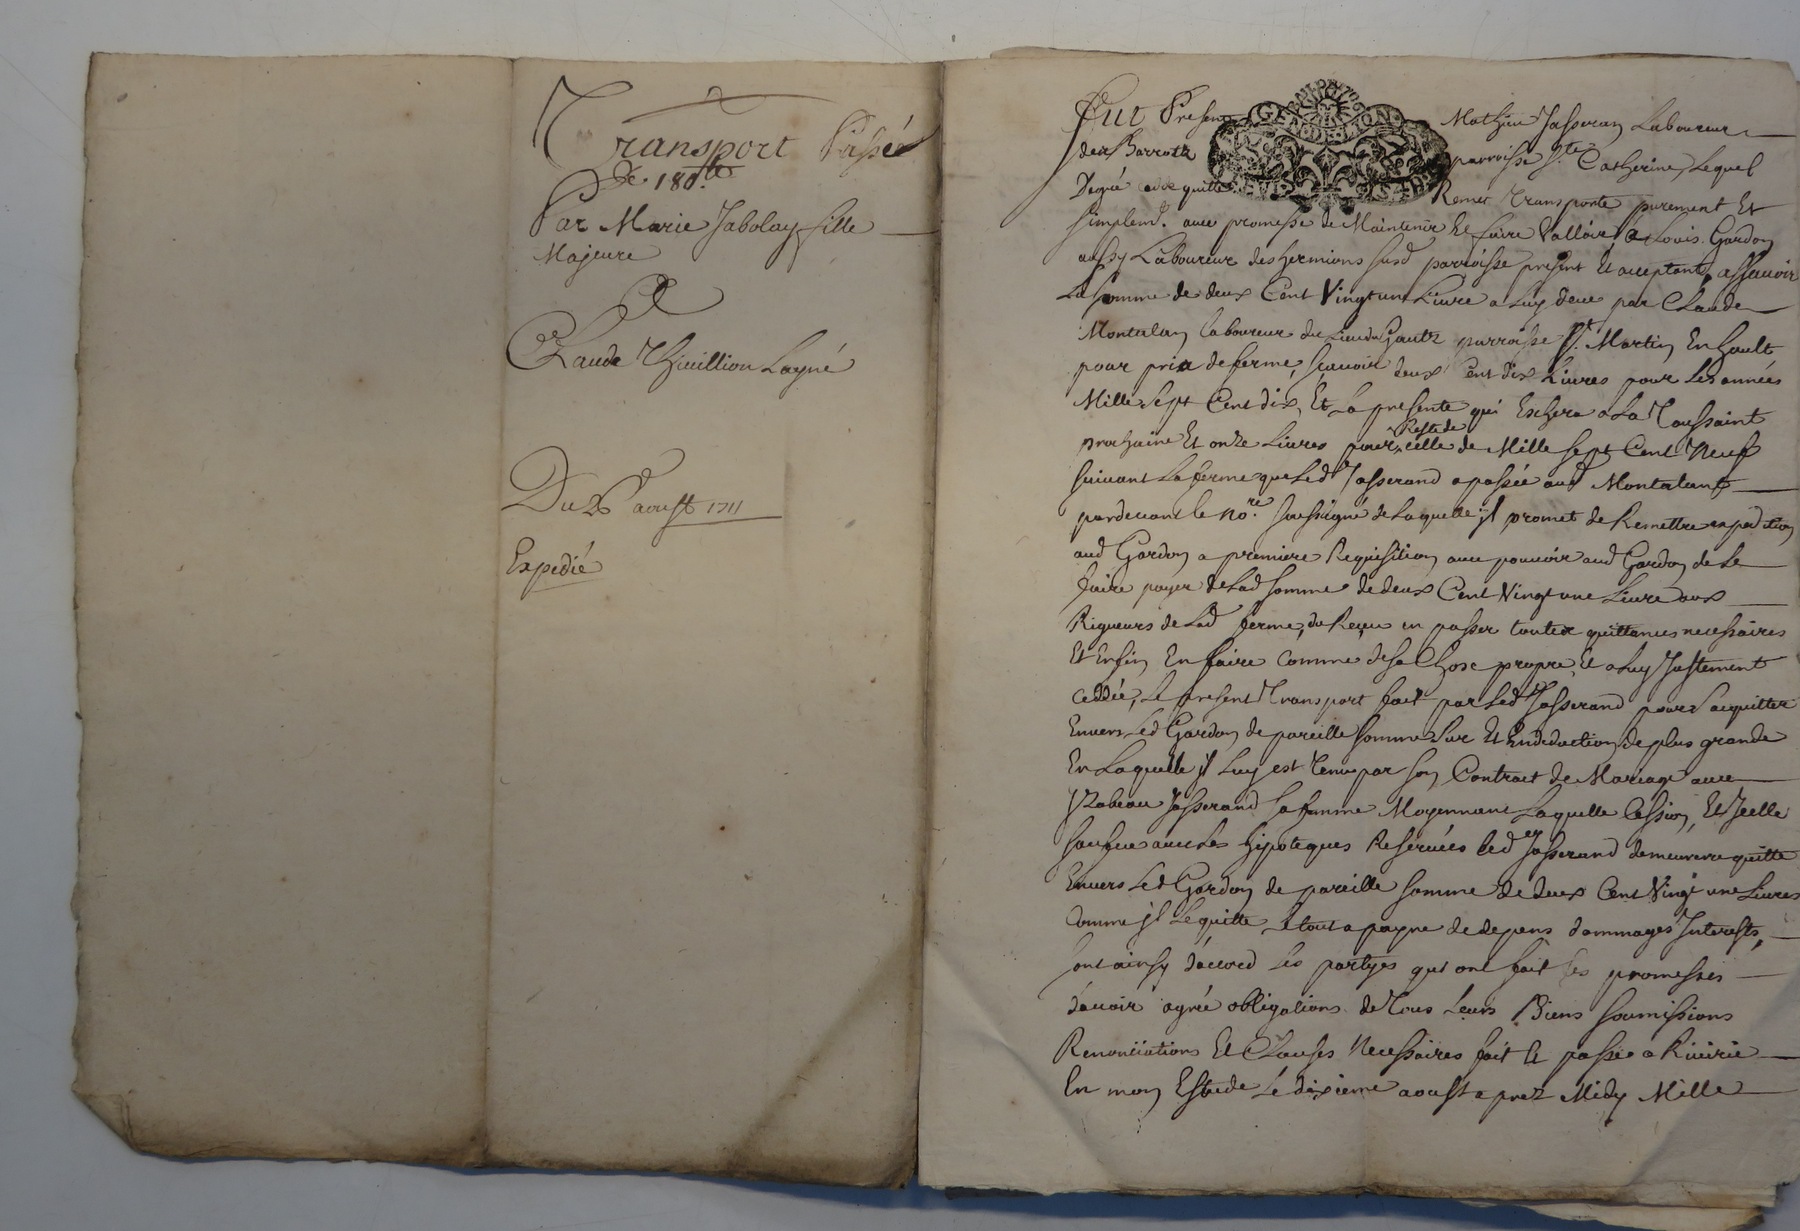 Transport Passé
De 180.tt
Par Marie Jabolay fille
Majeure
A
Claude Thuillion Layné
Du 26 aoust 1711
Expedié
Fut Present Mathieu Jasseran Laboureur
des Barrotz parroisse s.te Catherine, Lequel
Degré cedde quitte Remet Transporte purement Et
simplem.t avec promesse de Maintenir Et faire Valloir a Louis Gardon
aussy Laboureur des hermions susd parroisse present Et acceptant, assavoir
La somme de deux Cent Vingt une Livre a Luy deue par Claude
Montalan Laboureur du Lieu du Gautz parroisse st. Martin En hault
pour prix de ferme, sçavoir deux Cent dix Livres pour Les années
Mille Sept Cent dix, Et La presente qui Eschera a La Toussaint
prochaine Et onze Livres pour Reste de celle de Mille sept Cent Neuf
suivant La ferme que Led Jasserand a passée aud Montalant
pardevant le no.re soussigné de Laquelle jl promet de Remettre expedition
aud Gardon a premiere Requisition avec pouvoir aud Gardon de se
faire payer de Lad somme de deux Cent Vingt une Livre aux
Rigueurs de Lad ferme, du Reçeu en passer toutes quittances necessaires
Et Enfin En faire Comme de sa Chose propre, Et a Luy Justement
ceddée, Le present Transport fait par Led Jasserand pour s'acquitter
Envers Led Gardon de pareille somme sur Et En deduction de plus grande
En Laquelle jl Luy est Tenu par son Contract de Mariage avec
Yzabeau Jasserand sa femme Moyennant Laquelle Cession, Et Jcelle
sauf ses hipoteques Reservées led Jasserand demeurera quitte
Envers Led Gardon de pareille somme de deux Cent Vingt une Livres
Comme jl Le quitte, Le tout a payne de depens dommages Interests,
ont ainsy d'accord les partyes qui ont fait les promesses
d'avoir agrée obligations de Tous Leurs Biens soumissions
Renonciations Et Clauses Necessaires fait Et passé a Riverie
En mon Estude Le dixieme aoust aprez Midy Mille